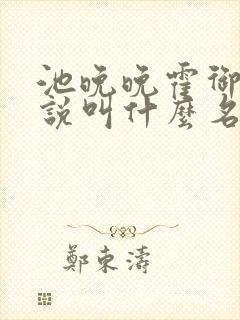 池晚晚霍御
說叫什麼名
鄭東濤